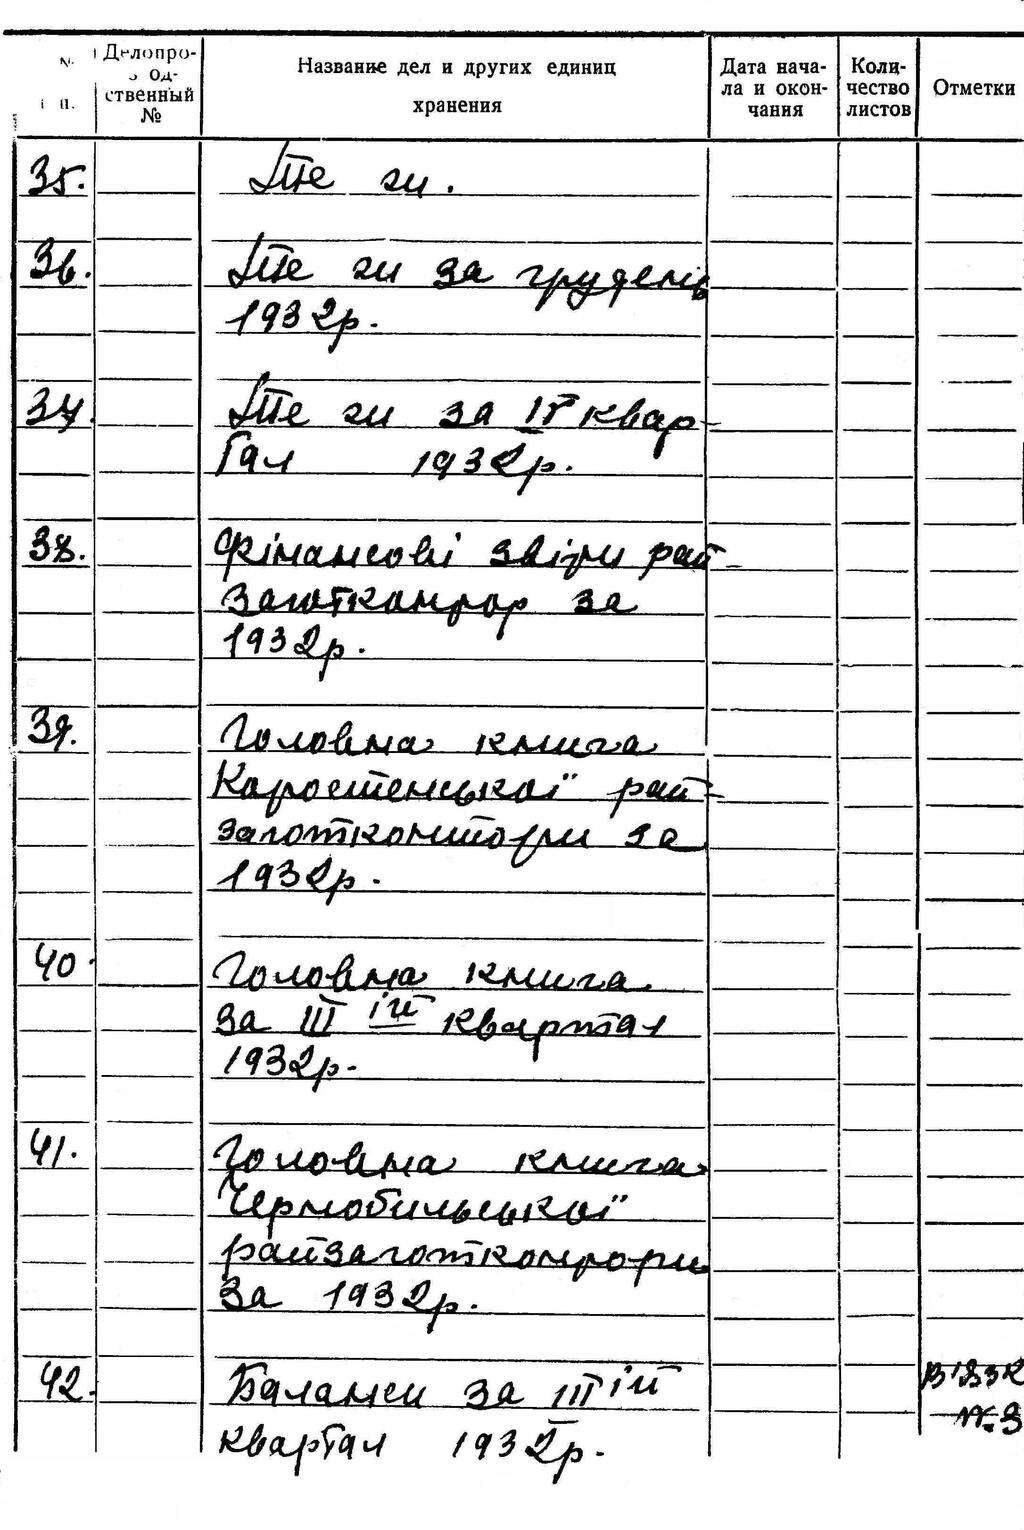 №
п.
Делопро-
од-
ственный
№
Название дел и других единиц
хранения
Дата нача-
ла и окон-
чания
Коли-
чество
листов
Отметки
35. Те ж.
36. Те ж за грудень
1932р.
37. Те ж за IV квар-
тал 1932р.
38. Фінансові звіти рай-
заготконтор за
1932р.
39. Головна книга
Коростенської рай-
заготконтори за
1932р.
40. Головна книга
за III ій квартал
1932р.
41. Головна книга
Чернобильської
райзаготконтори
за 1932р.
42. Баланси за III ій
квартал 1932р.
№3